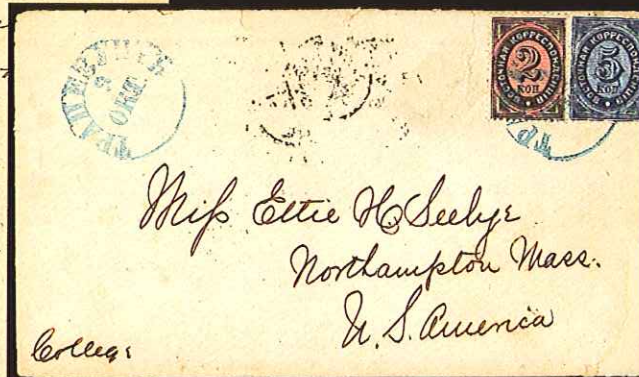 ТРАПЕЗУНТЪ
ВОСТОЧНАЯ КОРРЕСПОНДЕНЦІЯ
2
КОП
ВОСТОЧНАЯ КОРРЕСПОНДЕНЦІЯ
5
КОП
ТРА
Miss Ettie H. Seelye
Northampton Mass.
U. S. America
College